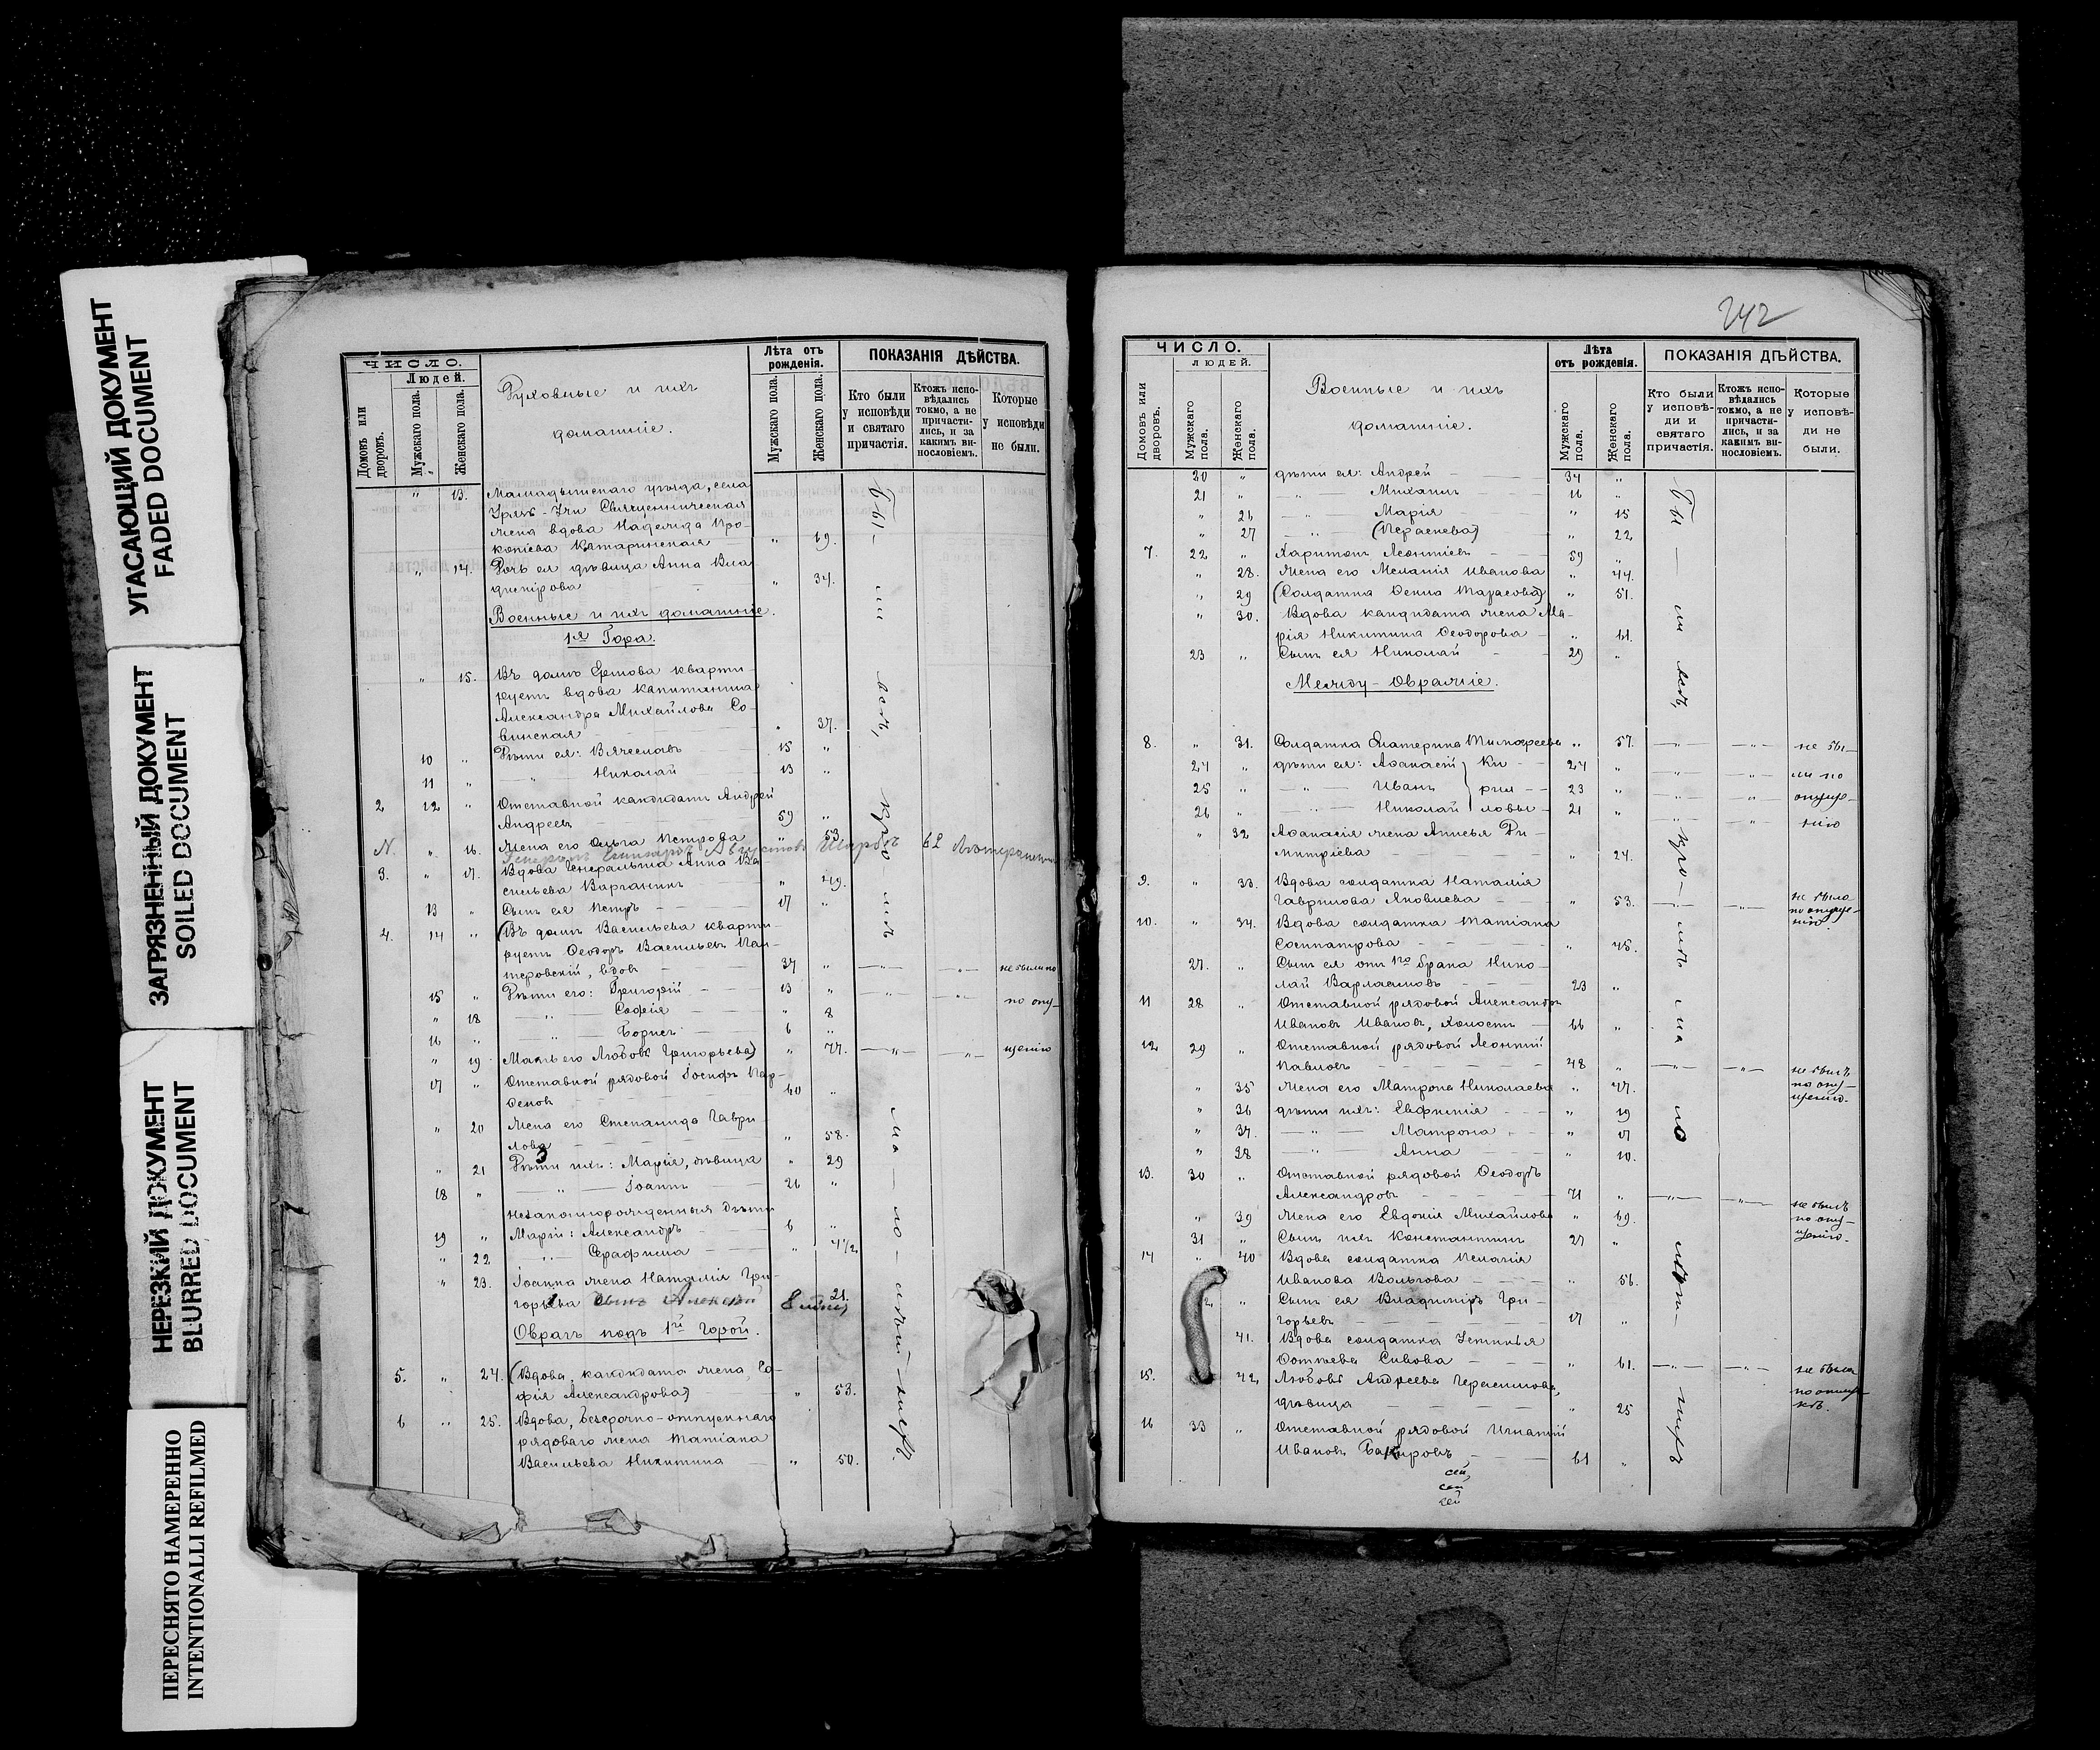 УГАСАЮЩИЙ ДОКУМЕНТ
FADED DOCUMENT
ЗАГРЯЗНЕННЫЙ ДОКУМЕНТ
SOILED DOCUMENT
НЕРЕЗКИЙ ДОКУМЕНТ
BLURRED DOCUMENT
ПЕРЕСНЯТО НАМЕРЕННО
INTENTIONALLI REFILMED
ЧИСЛО.
Людей.
Домовъ или дворовъ.
Мужскаго пола.
Женскаго пола.
Духовные и ихъ
домашніе.
Лѣта отъ рожденія.
Мужскаго пола.
Женскаго пола.
ПОКАЗАНІЯ ДѢЙСТВА.
Кто были у исповѣди и святаго причастія.
Ктожъ испо-вѣдались токмо, а не причасти-лись, и за какимъ ви-нословіемъ.
Которые у исповѣди не были.
" 13. Мамадышскаго уѣзда, села
Урясь-Учи Священническая
жена вдова Надежда Про-
копіева " 19.
" 14. Дочь ея дѣвица Анна Вла
димірова " 34.
Военные и ихъ домашніе.
1я Гора.
" 15. Въ домѣ Ермова кварти-
руетъ вдова капитанша
Александра Михайлова Со-
винская " 37.
10 " Дѣти ея: Вячеславъ 15 "
11 " " Николай 13 "
2 12 " Отставной кандидатъ Андрей
Андреевъ 59 "
N " 16. Жена его Ольга Петрова " 53.
62
3. " 17. Вдова Генеральша Анна Ва
сильева " 49.
13 " Сынъ ея Петръ 17 "
4. 14 " (Въ домѣ Васильева кварти
руетъ Ѳеодоръ Васильевъ Пан-
теровскій, вдовъ 37 " —"— —"— не были по
15 " Дѣти его: Григорій 13 " " —"— по опу-
" 18 —"— Софія " 8
16 " —"— Борисъ 6 "
" 19 Мать его Любовь Григорьева) " 77. —"— —"— щенію
17 " Отставной рядовой Іосифъ Пар-
ѳеновъ 60 "
" 20 Жена его Степанида Гаври
лова " 58.
" 21 Дѣти ихъ: Марія, дѣвица " 29
18 " —"— Іоаннъ 26 "
незаконнорожденныя дѣти
19 " Маріи: Александръ 6 "
" 22 —"— Серафима " 4½
" 23. Іоанна жена Наталія Гри-
горьева сынъ Алексѣй 21.
Оврагъ подъ 1й Горой.
5. " 24. (Вдова, кандидата жена, Со-
фія Александрова) " 53.
6 " 25. Вдова, безсрочно-отпускнаго
рядоваго жена Татіана
Васильева Никитина " 50.
242
ЧИСЛО.
людей.
Домовъ или дворовъ.
Мужскаго пола.
Женскаго пола.
Военные и ихъ
домашніе.
Лѣта отъ рожденія.
Мужскаго пола.
Женскаго пола.
ПОКАЗАНІЯ ДѢЙСТВА.
Кто были у исповѣ-ди и святаго причастія.
Ктожъ испо-вѣдались токмо, а не причасти-лись, и за какимъ ви-нословіемъ.
Которые у исповѣ-ди не были.
20 " дѣти ея: Андрей 34 "
21 " —"— Михаилъ 16 "
" 26 —"— Марія " 15
" 27 —"— (Параскева) " 22
7. 22 " Харитонъ Леонтіевъ 59 "
" 28. Жена его Меланія Иванова " 44.
" 29 (Солдатка Ѳекла Тарасова) " 51.
" 30. Вдова кандидата жена Ма-
рія Никитина Ѳеодорова " 61.
23 " Сынъ ея Николай 29 "
Между-Овражіе.
8. " 31. Солдатка Екатерина Тимоѳеева " 57. —"— —"— не бы-
24 " дѣти ея: Аѳанасій } Ки- 24 " —"— —"— ли по
25 " —"— Иванъ } рил- 23 " —"— —"— опуще-
26 " —"— Николай } ловы 21 " —"— —"— нію
" 32 Аѳанасія жена Анисья Ди-
митріева " 24.
9. " 33. Вдова солдатка Наталія
Гаврилова Яковлева " 53. —"— —"— не была
по опуще-
нію.
10. " 34. Вдова солдатка Татіана
Сосипатрова " 45.
27. " Сынъ ея отъ 1го брака Нико-
лай Варлаамовъ 23 "
11 28 " Отставной рядовой Александръ
Ивановъ Ивановъ, холостъ 66 "
12. 29 " Отставной рядовой Леонтій
Павловъ 48 " —"— —"— не былъ
по опу-
щенію.
" 35 Жена его Матрона Николаева " 47.
" 36 дѣти ихъ: Евфимія " 19
" 37. —"— Матрона " 17
" 38 —"— Анна " 10.
13. 30 " Отставной рядовой Ѳеодоръ
Александровъ 71 " —"— —"— не былъ
по опу-
щенію.
" 39 Жена его Евдокія Михайлова " 69.
31 " Сынъ ихъ Константинъ 27 "
14 " 40 Вдова солдатка Пелагія
Иванова Волкова " 56.
" Сынъ ея Владиміръ Гри-
горьевъ 17 "
41. Вдова солдатка Устинья
Фотьева Сивова " 61. —"— —"— не была
15. 42. Любовь Андреева Герасимова,
дѣвица " 25
16 33 " Отставной рядовой Игнатій
Ивановъ 61 "